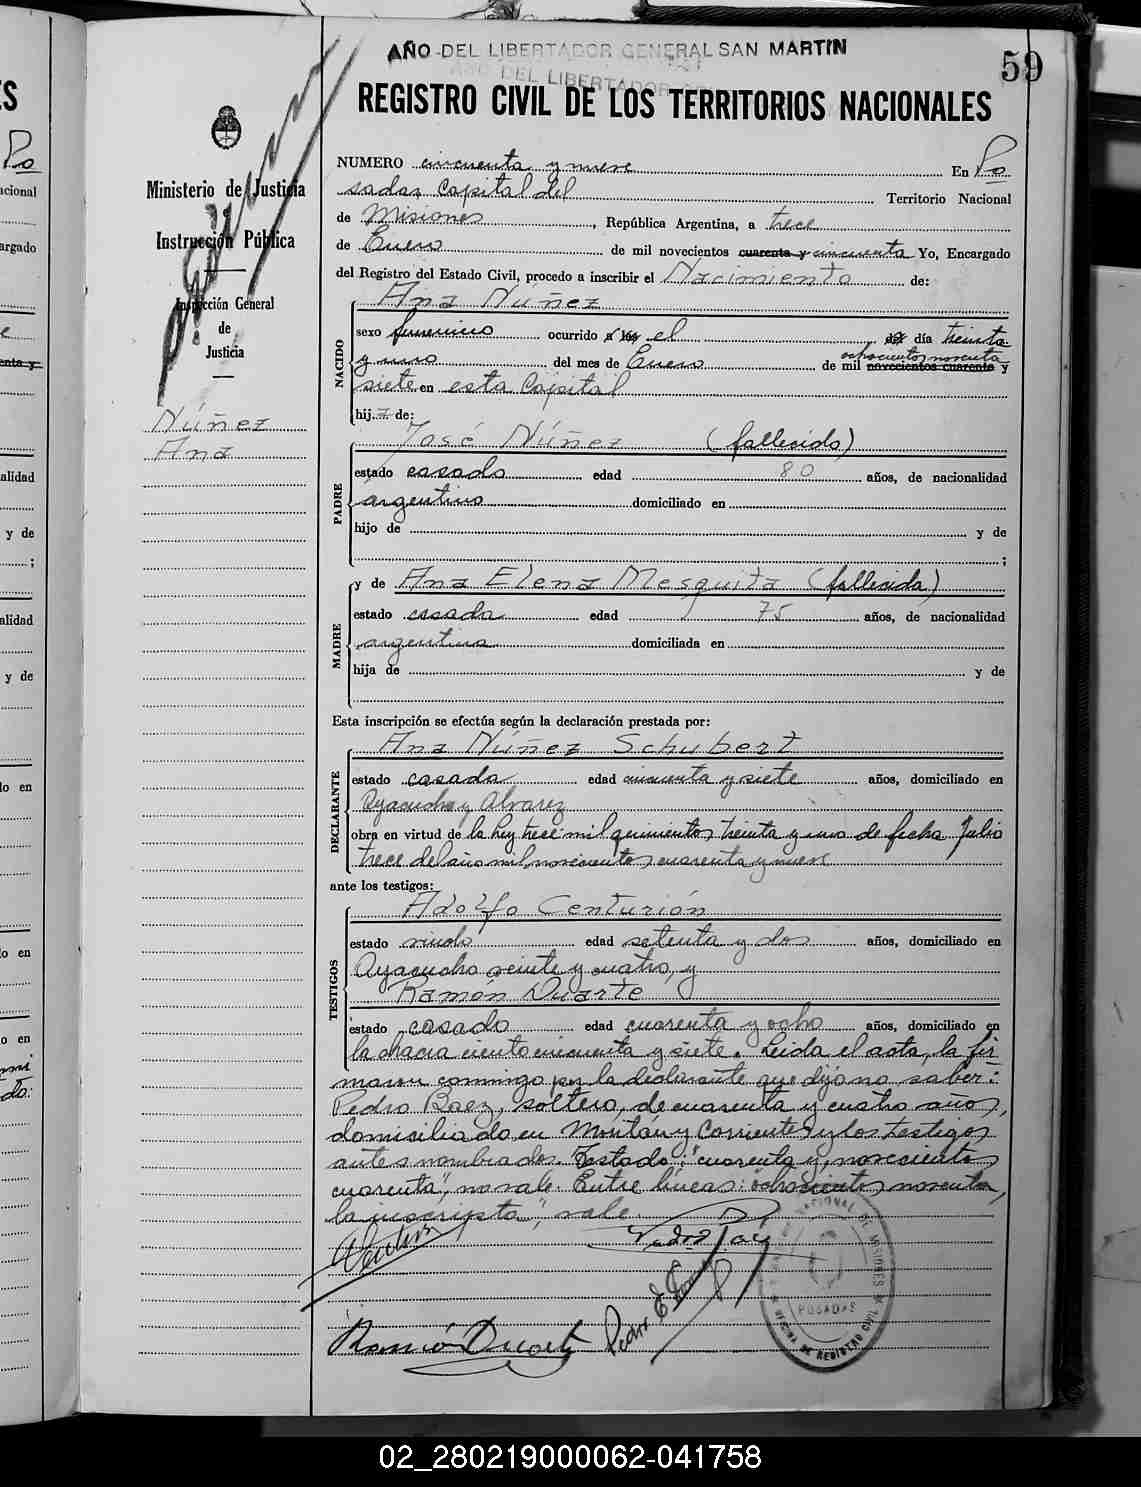 AÑO DEL LIBERTADOR GENERAL SAN MARTIN
59
REGISTRO CIVIL DE LOS TERRITORIOS NACIONALES
Ministerio de Justicia
Instrucción Pública
Inspección General
de
Justicia
Núñez
Ana
NUMERO cincuenta y nueve En Po
sadas Capital del Territorio Nacional
de Misiones, República Argentina, a trece
de Enero de mil novecientos cuarenta y cincuenta Yo, Encargado
del Registro del Estado Civil, procedo a inscribir el Nacimiento de:
NACIDO
Ana Núñez
sexo femenino ocurrido a las el del día treinta
y uno del mes de Enero de mil novecientos cuarenta y
ochocientos noventa
siete en esta Capital
hija de:
PADRE
José Núñez (fallecido)
estado casado edad 80 años, de nacionalidad
argentino domiciliado en
hijo de y de
;
MADRE
y de Ana Elena Mesquita (fallecida)
estado casada edad 75 años, de nacionalidad
argentina domiciliada en
hija de y de
Esta inscripción se efectúa según la declaración prestada por:
DECLARANTE
Ana Núñez Schubert
estado casada edad cincuenta y siete años, domiciliado en
Ayacucho y Alvarez
obra en virtud de la ley trece mil quinientos treinta y uno de fecha Julio
trece del año mil novecientos cuarenta y nueve
ante los testigos:
TESTIGOS
Adolfo Centurión
estado viudo edad setenta y dos años, domiciliado en
Ayacucho veinte y cuatro, y
Ramón Duarte
estado casado edad cuarenta y ocho años, domiciliado en
la chacra ciento cincuenta y siete. Leida el acta, la fir
maron conmigo por la declarante que dijo no saber:
Pedro Baez, soltero, de cuarenta y cuatro años,
domiciliado en Montán y Corrientes y los testigos
antes nombrados. Testado: "cuarenta y, novecientos
cuarenta", no vale. Entre líneas: ochocientos noventa,
la inscripta", vale.
Ramón Duarte
POSADAS
OFICINA DE REGISTRO CIVIL
NACIONAL DE MISIONES
02_280219000062-041758